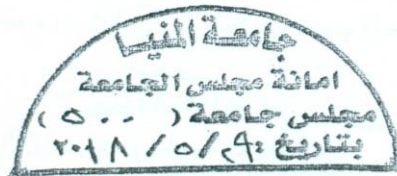 جامعة المنيا
امانة مجلس الجامعة
مجلس جامعة ( ٥٠٠ )
بتاريخ : ٢٩ / ٥ / ٢٠١٨